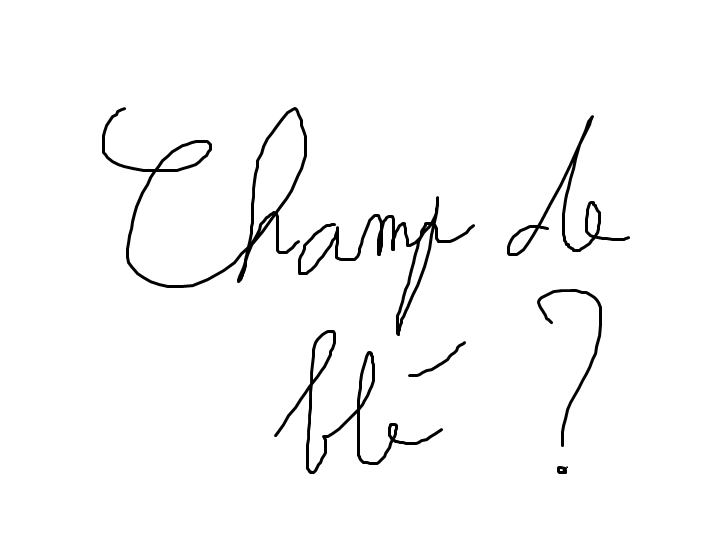 Champ de
blé ?